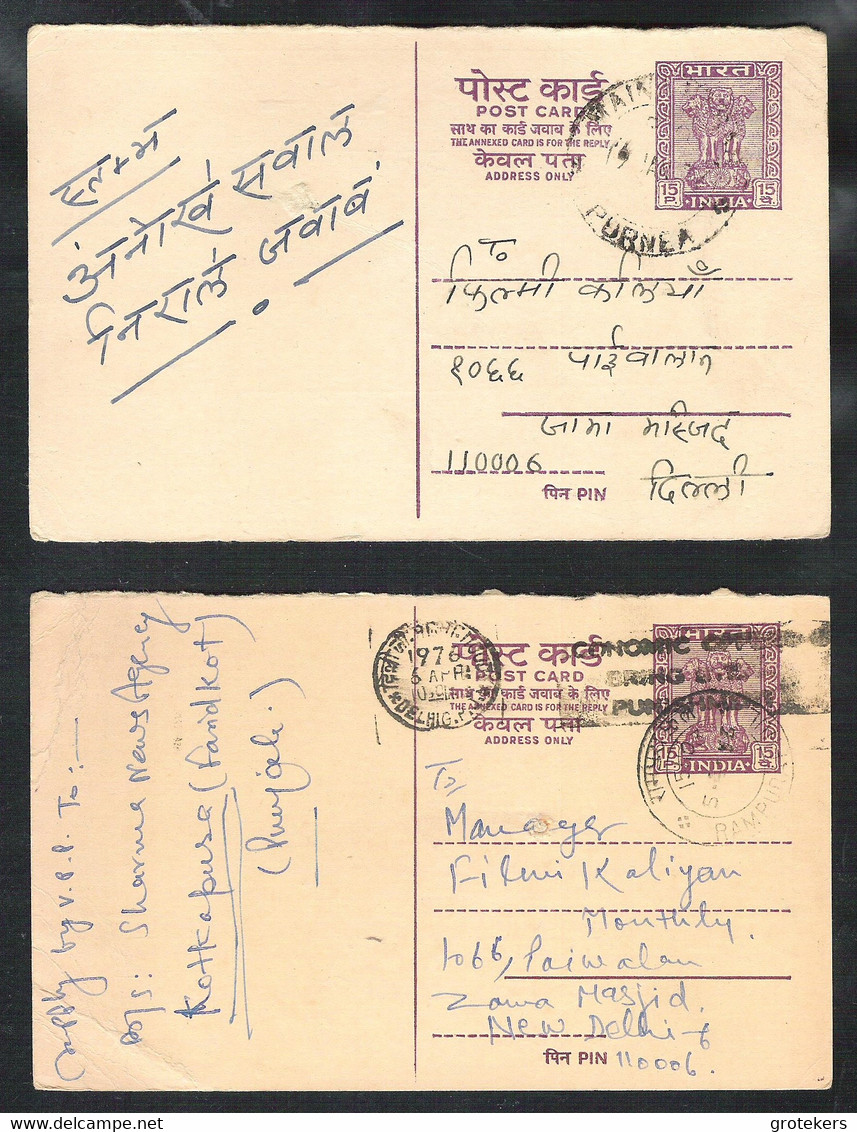 पोस्ट कार्ड
POST CARD
साथ का कार्ड जवाब के लिए
THE ANNEXED CARD IS FOR THE REPLY
केवल पता
ADDRESS ONLY
भारत
15 P. INDIA 15 पै.
PURNEA
स्तम्भ
अनोखे सवाल
निराले जवाब
To
फिल्मी कलियाँ
१०६६ पाईवालान
जामा मस्जिद
110006 दिल्ली
पिन PIN
पोस्ट कार्ड
POST CARD
साथ का कार्ड जवाब के लिए
THE ANNEXED CARD IS FOR THE REPLY
केवल पता
ADDRESS ONLY
भारत
15 P. INDIA 15 पै.
1976
DELHI G.P.O.
ECONOMIC
BRING
RAMPUR
Supply by V.P.P. To:—
M/s: Sharma News Agency
Kotkapura (Faridkot)
(Punjab.)
To,
Manager
Filmi Kaliyan
Monthly.
1066, Paiwalan
Zama Masjid.
New Delhi-6
पिन PIN 110006.
grotekers